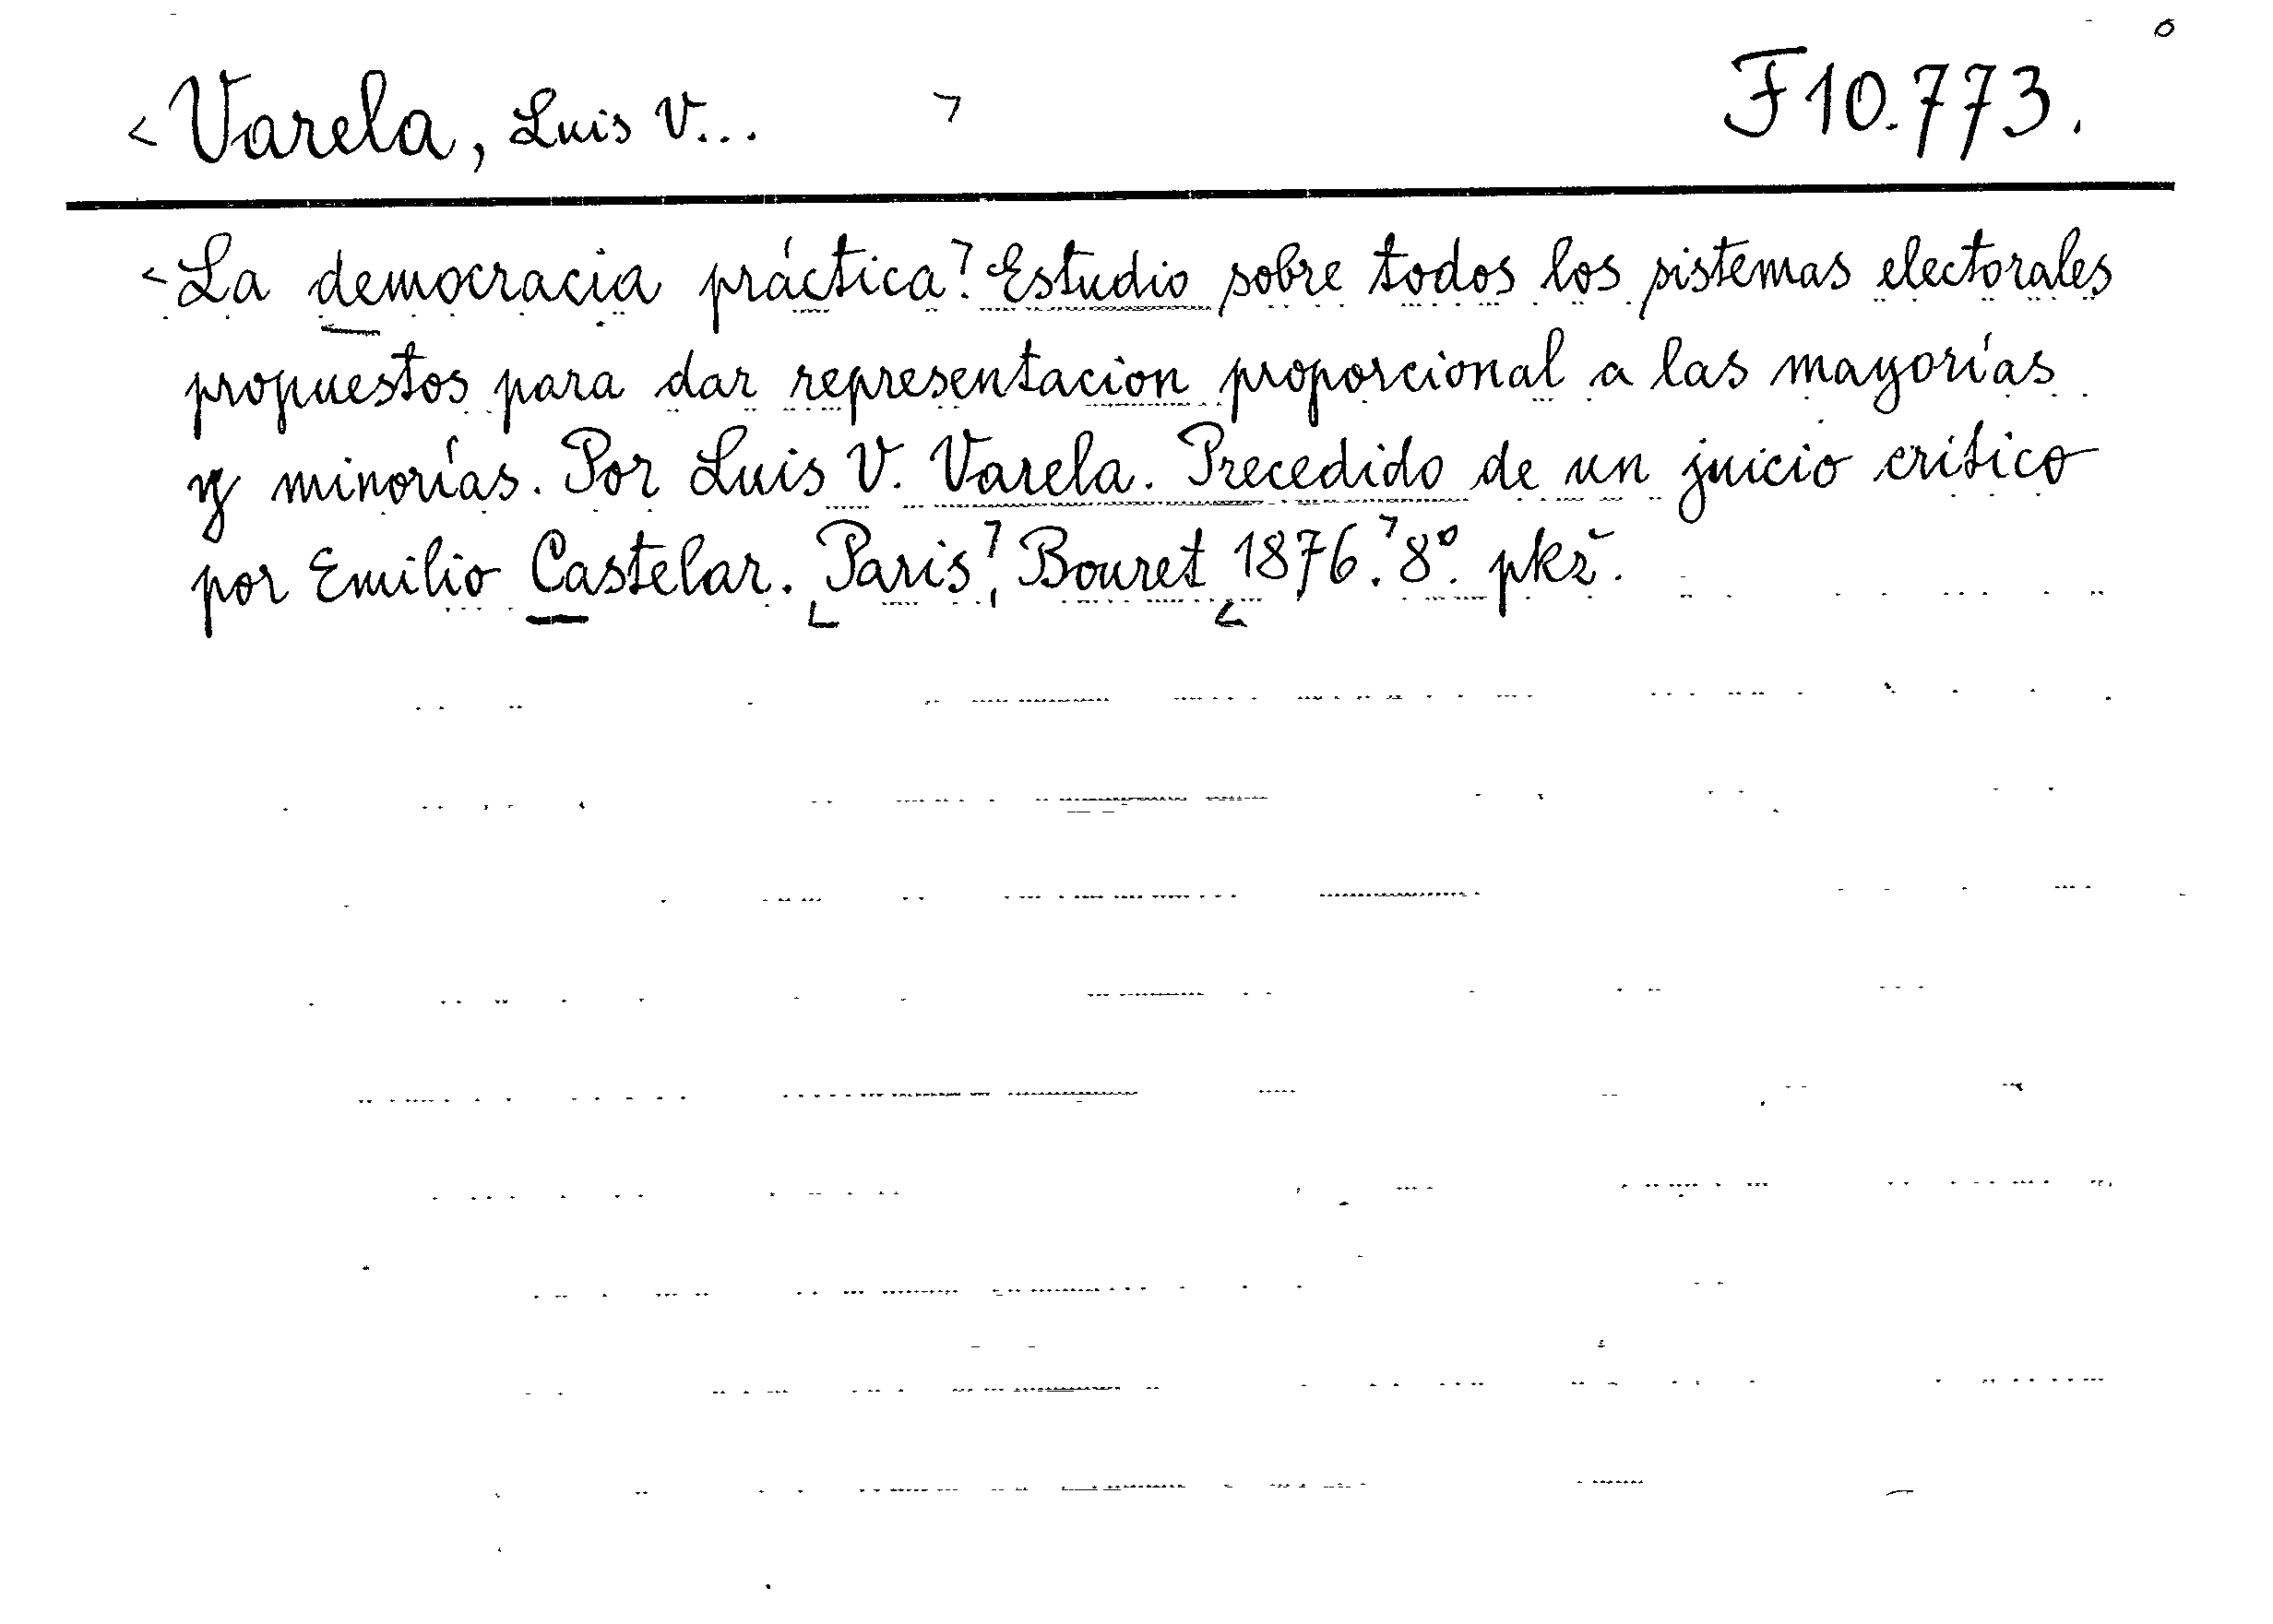 <Varela, Luis V... > F 10.773.
<La democracia práctica>. Estudio sobre todos los sistemas electorales
propuestos para dar representacion proporcional a las mayorías
y minorías. Por Luis V. Varela. Precedido de un juicio critico
por Emilio Castelar. <Paris>, Bouret <1876.> 8°. pkž.